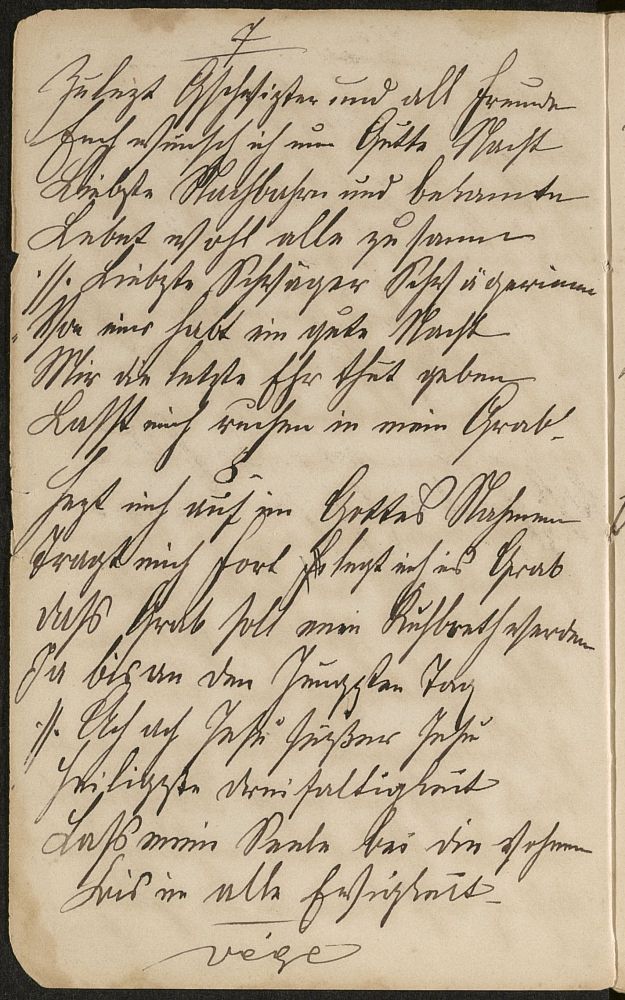 7
Zulezt Gschwister und all Freunde
Euch wünsch ich nun Gutte Nacht
Liebste Nachbahrn und bekannte
Lebet wohl alle zu samm
:/: Liebste Schwäger Schwägerinnen
Von mir habt ein gute Nacht
Mir die letzte Ehr thut geben
Lasst mich ruhen in mein Grab
8
Hept mich auf im Gottes Nahmen
Tragt mich fort legt mich ins Grab
dass Grab soll mein Ruhbreth werden
Ja bis an den Jüngsten Tag
:/: Ach ach Jesu süßer Jesu
Heiligste dreifaltigkeit
Lass mein Seele bei dir wohnen
bis in alle Ewigkeit
vége